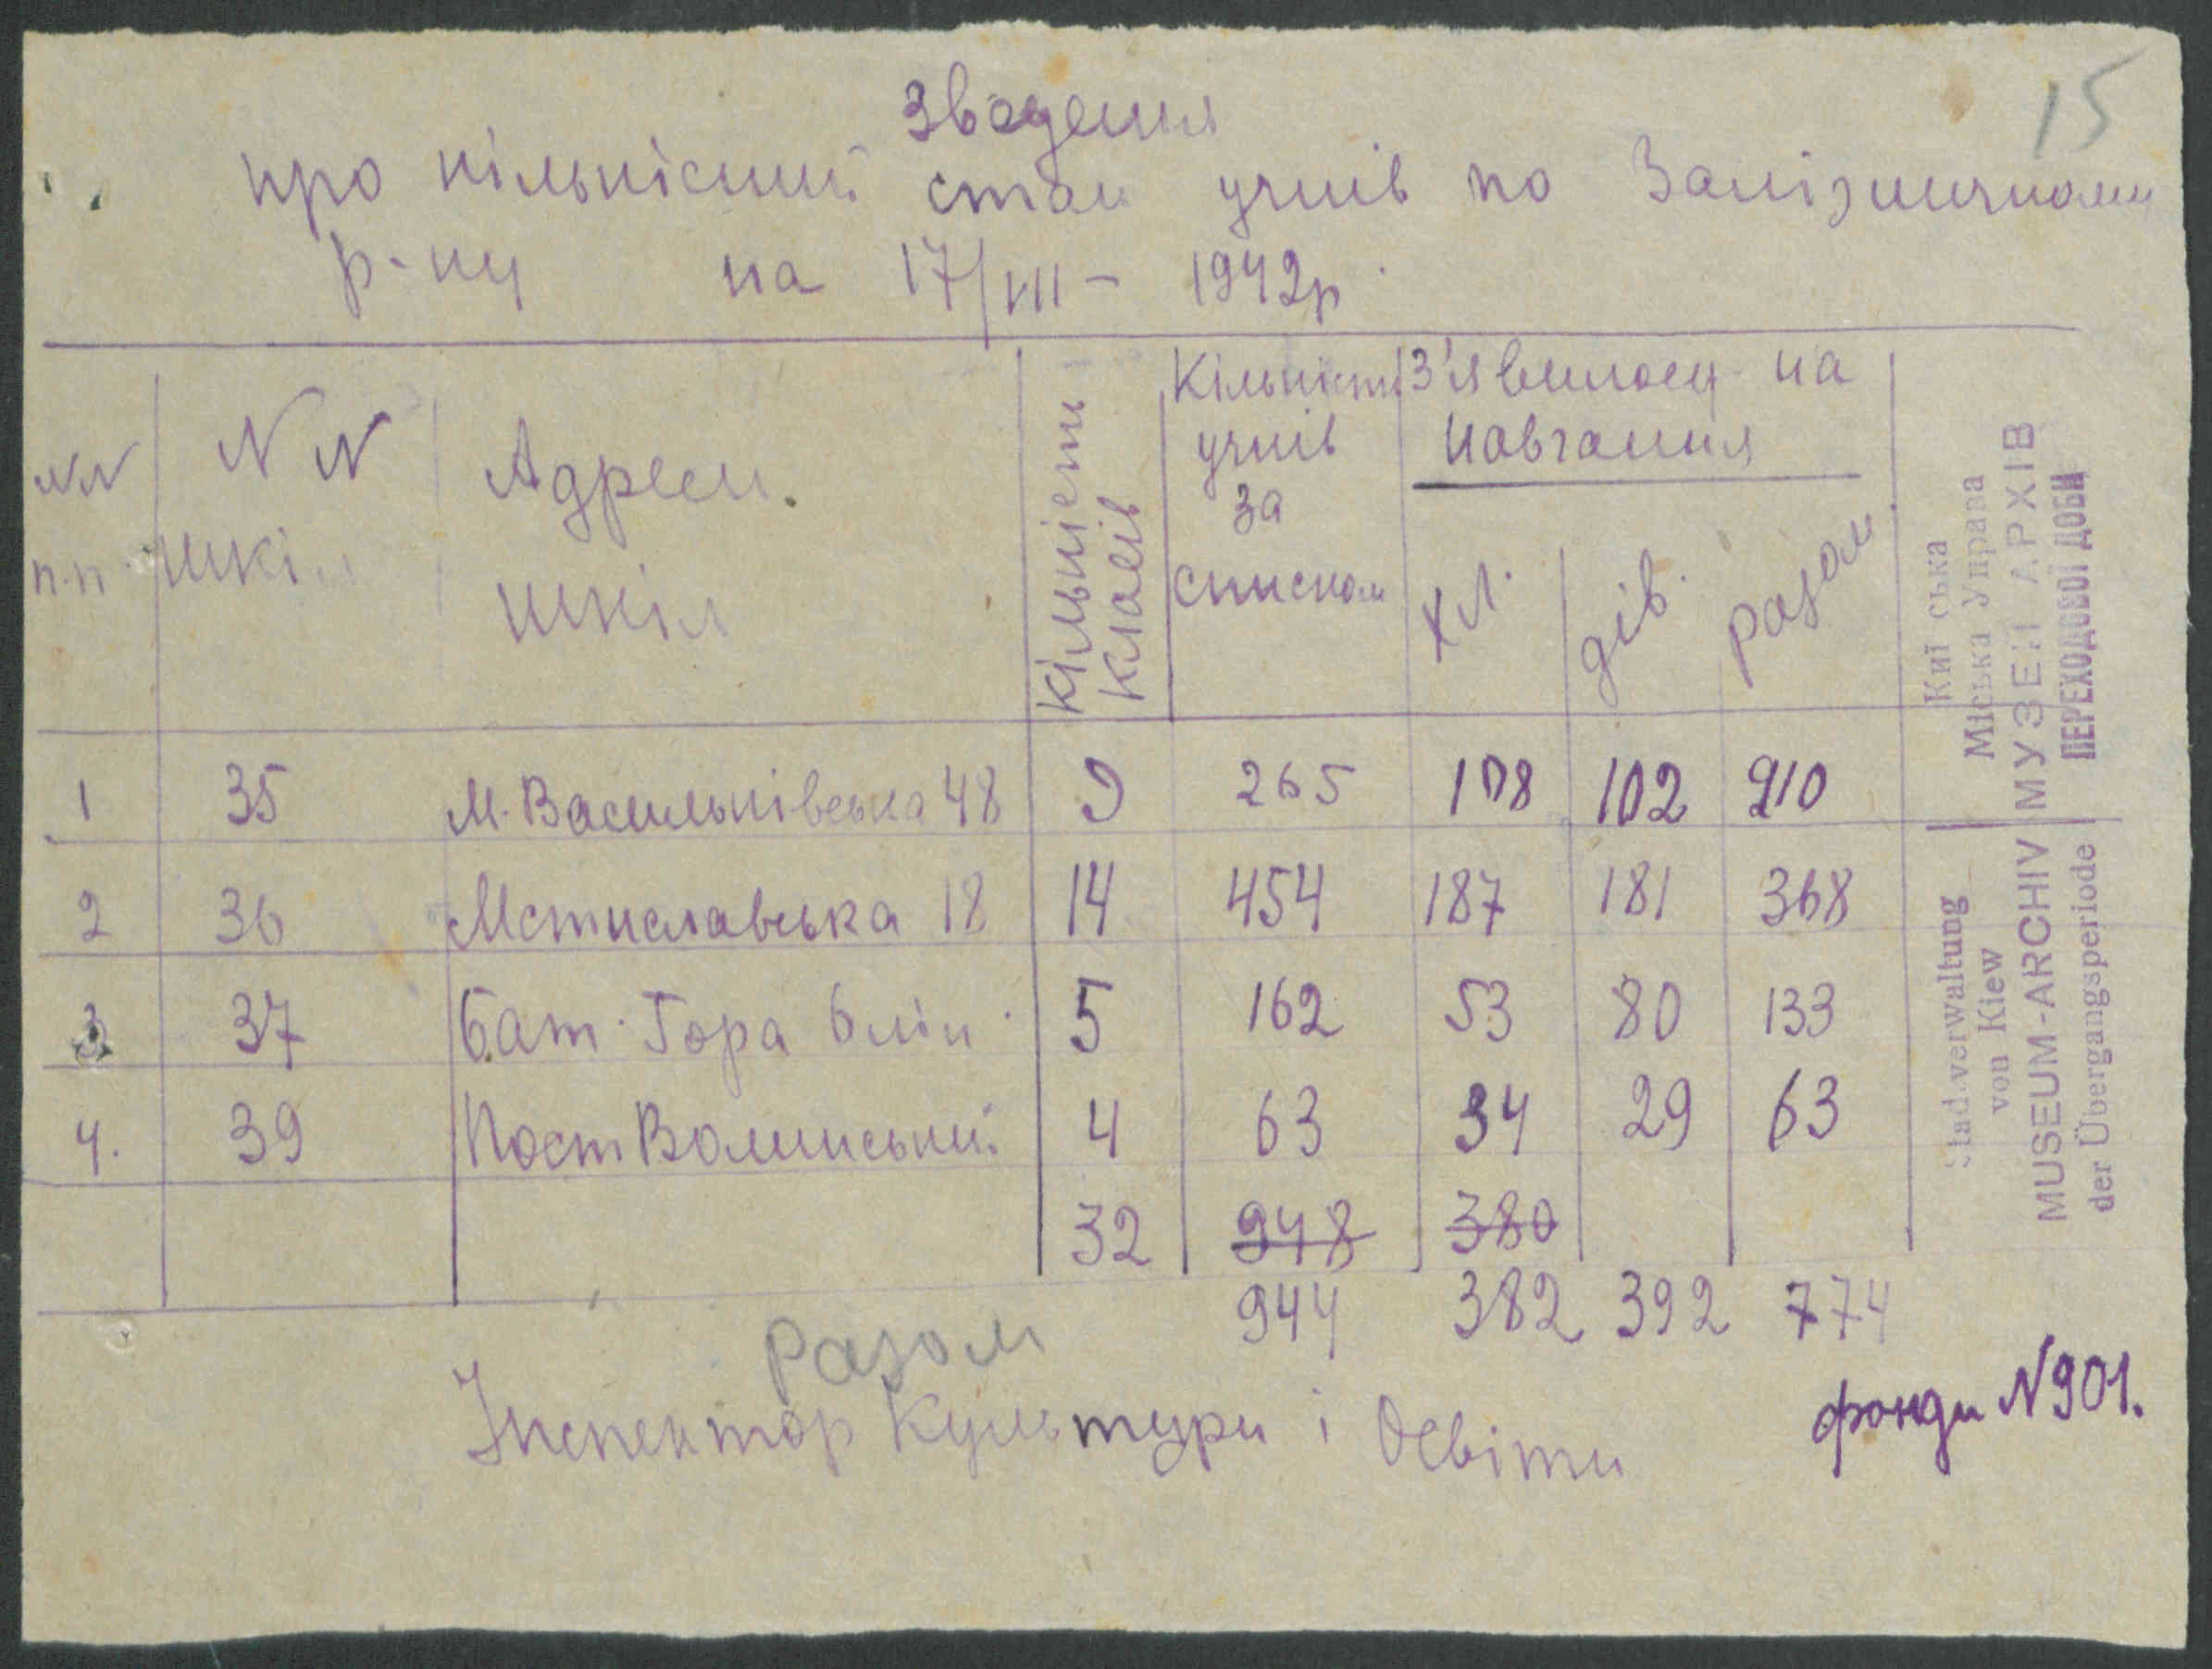 15
Зведення
про кількісний стан учнів по Залізничному
р-ну на 17/VIII - 1942р.
NN п.п. | NN шкіл | Адреси шкіл | Кількість класів | Кількість учнів за списком | З'явилося на навчання хл. | дів. | разом
1 | 35 | М. Васильківська 48 | 9 | 265 | 108 | 102 | 210
2 | 36 | Мстиславська 18 | 14 | 454 | 187 | 181 | 368
3 | 37 | Бат. Гора 6 лін. | 5 | 162 | 53 | 80 | 133
4. | 39 | Пост Волинський | 4 | 63 | 34 | 29 | 63
32 | 948 | 380
944 | 382 | 392 | 774
Разом
Інспектор Культури і Освіти
фонди N 901.
Київська
Міська Управа
МУЗЕЙ АРХІВ
ПЕРЕХОДОВОЇ ДОБИ
Stadtverwaltung
von Kiew
MUSEUM-ARCHIV
der Übergangsperiode